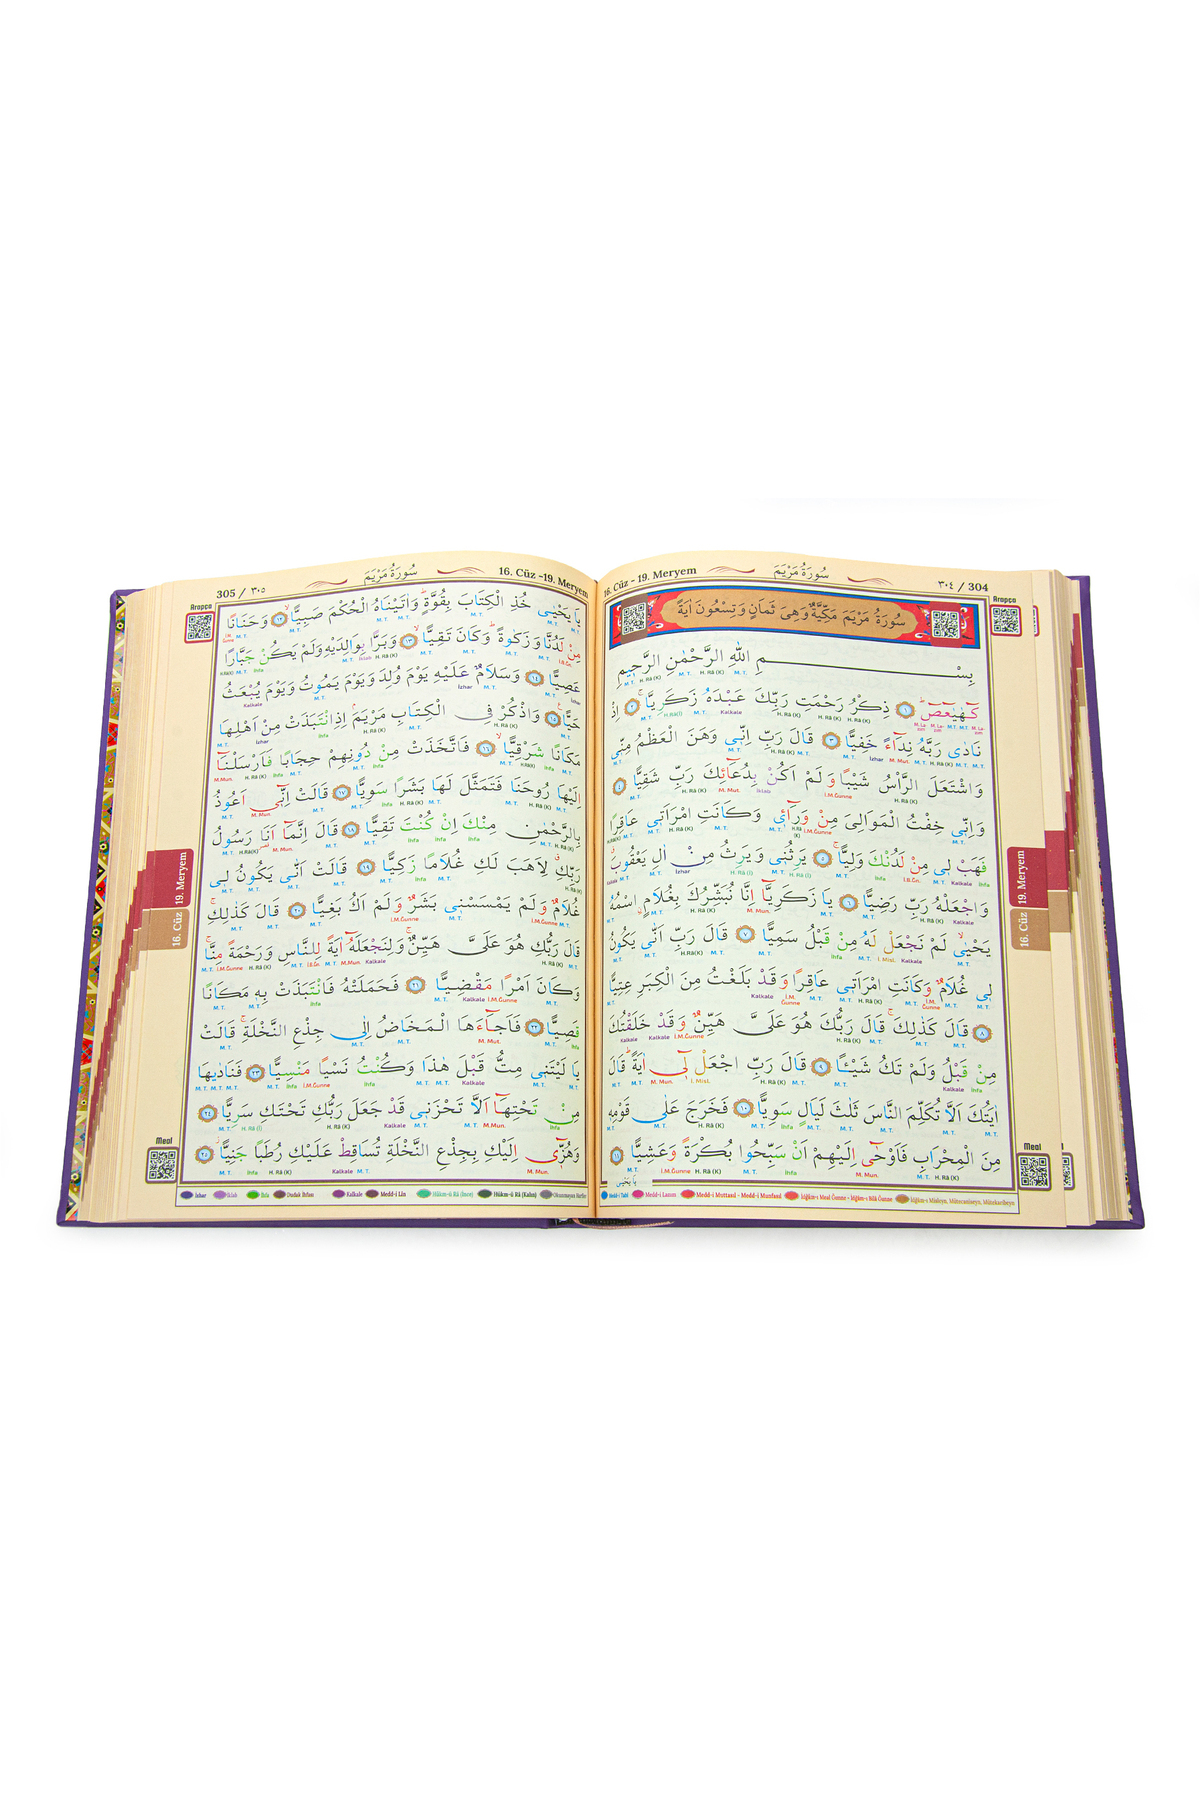 ٣٠٤ / 304
سُورَةُ مَرْيَمَ
16. Cüz - 19. Meryem
سُورَةُ مَرْيَمَ مَكِّيَّةٌ وَهِيَ ثَمَانٍ وَتِسْعُونَ اٰيَةً
بِسْمِ اللّٰهِ الرَّحْمٰنِ الرَّحٖيمِ
كٓهٰيٰعٓصٓ ﴿١﴾ ذِكْرُ رَحْمَتِ رَبِّكَ عَبْدَهُ زَكَرِيَّا ﴿٢﴾ اِذْ
نَادٰى رَبَّهُ نِدَٓاءً خَفِيًّا ﴿٣﴾ قَالَ رَبِّ اِنّٖى وَهَنَ الْعَظْمُ مِنّٖى
وَاشْتَعَلَ الرَّاْسُ شَيْبًا وَلَمْ اَكُنْ بِدُعَٓائِكَ رَبِّ شَقِيًّا ﴿٤﴾
وَاِنّٖى خِفْتُ الْمَوَالِىَ مِنْ وَرَٓاءٖى وَكَانَتِ امْرَاَتٖى عَاقِرًا
فَهَبْ لٖى مِنْ لَدُنْكَ وَلِيًّا ﴿٥﴾ يَرِثُنٖى وَيَرِثُ مِنْ اٰلِ يَعْقُوبَ
وَاجْعَلْهُ رَبِّ رَضِيًّا ﴿٦﴾ يَا زَكَرِيَّٓا اِنَّا نُبَشِّرُكَ بِغُلَامٍ اسْمُهُ
يَحْيٰى لَمْ نَجْعَلْ لَهُ مِنْ قَبْلُ سَمِيًّا ﴿٧﴾ قَالَ رَبِّ اَنّٰى يَكُونُ
لٖى غُلَامٌ وَكَانَتِ امْرَاَتٖى عَاقِرًا وَقَدْ بَلَغْتُ مِنَ الْكِبَرِ عِتِيًّا
﴿٨﴾ قَالَ كَذٰلِكَ قَالَ رَبُّكَ هُوَ عَلَىَّ هَيِّنٌ وَقَدْ خَلَقْتُكَ
مِنْ قَبْلُ وَلَمْ تَكُ شَيْـًٔا ﴿٩﴾ قَالَ رَبِّ اجْعَلْ لٖٓى اٰيَةً قَالَ
اٰيَتُكَ اَلَّا تُكَلِّمَ النَّاسَ ثَلٰثَ لَيَالٍ سَوِيًّا ﴿١٠﴾ فَخَرَجَ عَلٰى قَوْمِهٖ
مِنَ الْمِحْرَابِ فَاَوْحٰٓى اِلَيْهِمْ اَنْ سَبِّحُوا بُكْرَةً وَعَشِيًّا ﴿١١﴾
يَا يَحْيٰى
Medd-i Tabiî Medd-i Lazım Medd-i Muttasıl - Medd-i Munfasıl
305 / ٣٠٥
سُورَةُ مَرْيَمَ
16. Cüz -19. Meryem
يَا يَحْيٰى خُذِ الْكِتَابَ بِقُوَّةٍ وَاٰتَيْنَاهُ الْحُكْمَ صَبِيًّا ﴿١٢﴾ وَحَنَانًا
مِنْ لَدُنَّا وَزَكٰوةً وَكَانَ تَقِيًّا ﴿١٣﴾ وَبَرًّا بِوَالِدَيْهِ وَلَمْ يَكُنْ جَبَّارًا
عَصِيًّا ﴿١٤﴾ وَسَلَامٌ عَلَيْهِ يَوْمَ وُلِدَ وَيَوْمَ يَمُوتُ وَيَوْمَ يُبْعَثُ
حَيًّا ﴿١٥﴾ وَاذْكُرْ فِى الْكِتَابِ مَرْيَمَ اِذِ انْتَبَذَتْ مِنْ اَهْلِهَا
مَكَانًا شَرْقِيًّا ﴿١٦﴾ فَاتَّخَذَتْ مِنْ دُونِهِمْ حِجَابًا فَاَرْسَلْنَٓا
اِلَيْهَا رُوحَنَا فَتَمَثَّلَ لَهَا بَشَرًا سَوِيًّا ﴿١٧﴾ قَالَتْ اِنّٖٓى اَعُوذُ
بِالرَّحْمٰنِ مِنْكَ اِنْ كُنْتَ تَقِيًّا ﴿١٨﴾ قَالَ اِنَّمَٓا اَنَا رَسُولُ
رَبِّكِ لِاَهَبَ لَكِ غُلَامًا زَكِيًّا ﴿١٩﴾ قَالَتْ اَنّٰى يَكُونُ لٖى
غُلَامٌ وَلَمْ يَمْسَسْنٖى بَشَرٌ وَلَمْ اَكُ بَغِيًّا ﴿٢٠﴾ قَالَ كَذٰلِكِ
قَالَ رَبُّكِ هُوَ عَلَىَّ هَيِّنٌ وَلِنَجْعَلَهُٓ اٰيَةً لِلنَّاسِ وَرَحْمَةً مِنَّا
وَكَانَ اَمْرًا مَقْضِيًّا ﴿٢١﴾ فَحَمَلَتْهُ فَانْتَبَذَتْ بِهٖ مَكَانًا
قَصِيًّا ﴿٢٢﴾ فَاَجَٓاءَهَا الْمَخَاضُ اِلٰى جِذْعِ النَّخْلَةِ قَالَتْ
يَا لَيْتَنٖى مِتُّ قَبْلَ هٰذَا وَكُنْتُ نَسْيًا مَنْسِيًّا ﴿٢٣﴾ فَنَادٰيهَا
مِنْ تَحْتِهَٓا اَلَّا تَحْزَنٖى قَدْ جَعَلَ رَبُّكِ تَحْتَكِ سَرِيًّا ﴿٢٤﴾
وَهُزّٖٓى اِلَيْكِ بِجِذْعِ النَّخْلَةِ تُسَاقِطْ عَلَيْكِ رُطَبًا جَنِيًّا ﴿٢٥﴾
İzhar İklab İhfa Dudak İhfası Kalkale Medd-i Lin Hükm-ü Râ (İnce) Hükm-ü Râ (Kalın)
Arapça
19. Meryem
16. Cüz
Meal
Arapça
19. Meryem
16. Cüz
Meal